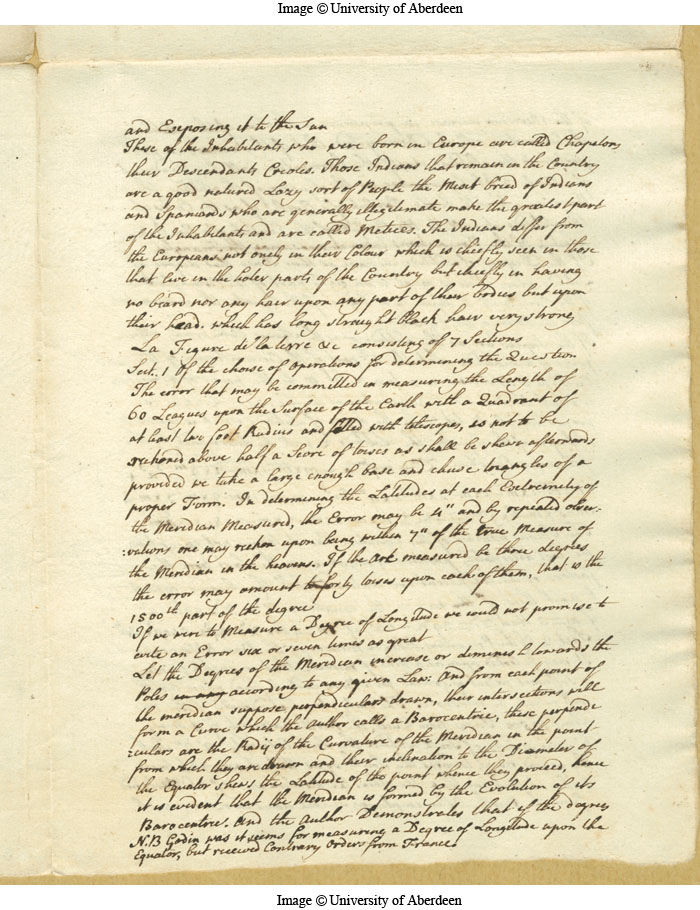 Image © University of Aberdeen
and Exposing it to the Sun
These of the Inhabitants who were born in Europe are called Chapetons
their Descendants Creoles. Those Indians that remain in the Country
are a good natured Lazy sort of People the Mixt breed of Indians
and Spaniards who are generally illegitimate make the greatest part
of the Inhabitants and are called Metices. The Indians differ from
the Europeans not only in their Colour which is chiefly seen in those
that live in the hoter parts of the Country but chiefly in having
no beard nor any hair upon any part of their bodies but upon
their head. which has long straught black hair very strong
La Figure de la terre &c consisting of 7 Sections
Sect. 1 Of the choise of operations for determining the Question
The error that may be committed in measuring the Length of
60 Leagues upon the Surface of the Earth with a Quadrant of
at least two foot Radius and fitted with telescopes, is not to be
reckoned above half a Score of toises as shall be shewn afterwards
provided we take a large enough base and chuse triangles of a
proper Form. In determining the Latitudes at each Extremety of
the Meridian Measured, the Error may be 4" and by repeated obser-
:vations one may reckon upon being within 7" of the true Measure of
the Meridian in the heavens. If the Ark measured be three degrees
the error may amount to forty toises upon each of them, that is the
1500th part of the degree
If we were to Measure a Degree of Longitude we could not promise to
evite an Error six or seven times as great
Let the Degrees of the Meridian increase or diminish towards the
Poles according to any given Law: And from each point of
the meridian suppose perpendiculars drawn, their intersections will
form a Curve which the Author calls a Barocentric, these perpende
:culars are the Radij of the Curvature of the Meridian in the point
from which they are drawn and their inclination to the Diameter of
the Equator shews the Latitude of the point whence they proceed, hence
it is evident that the Meridian is formed by the Evolution of its
Barocentric. And the Author Demonstrates that if the degrees
N.B Godin was it seems for measuring a Degree of Longitude upon the
Equator, but received Contrary Orders from France.
Image © University of Aberdeen